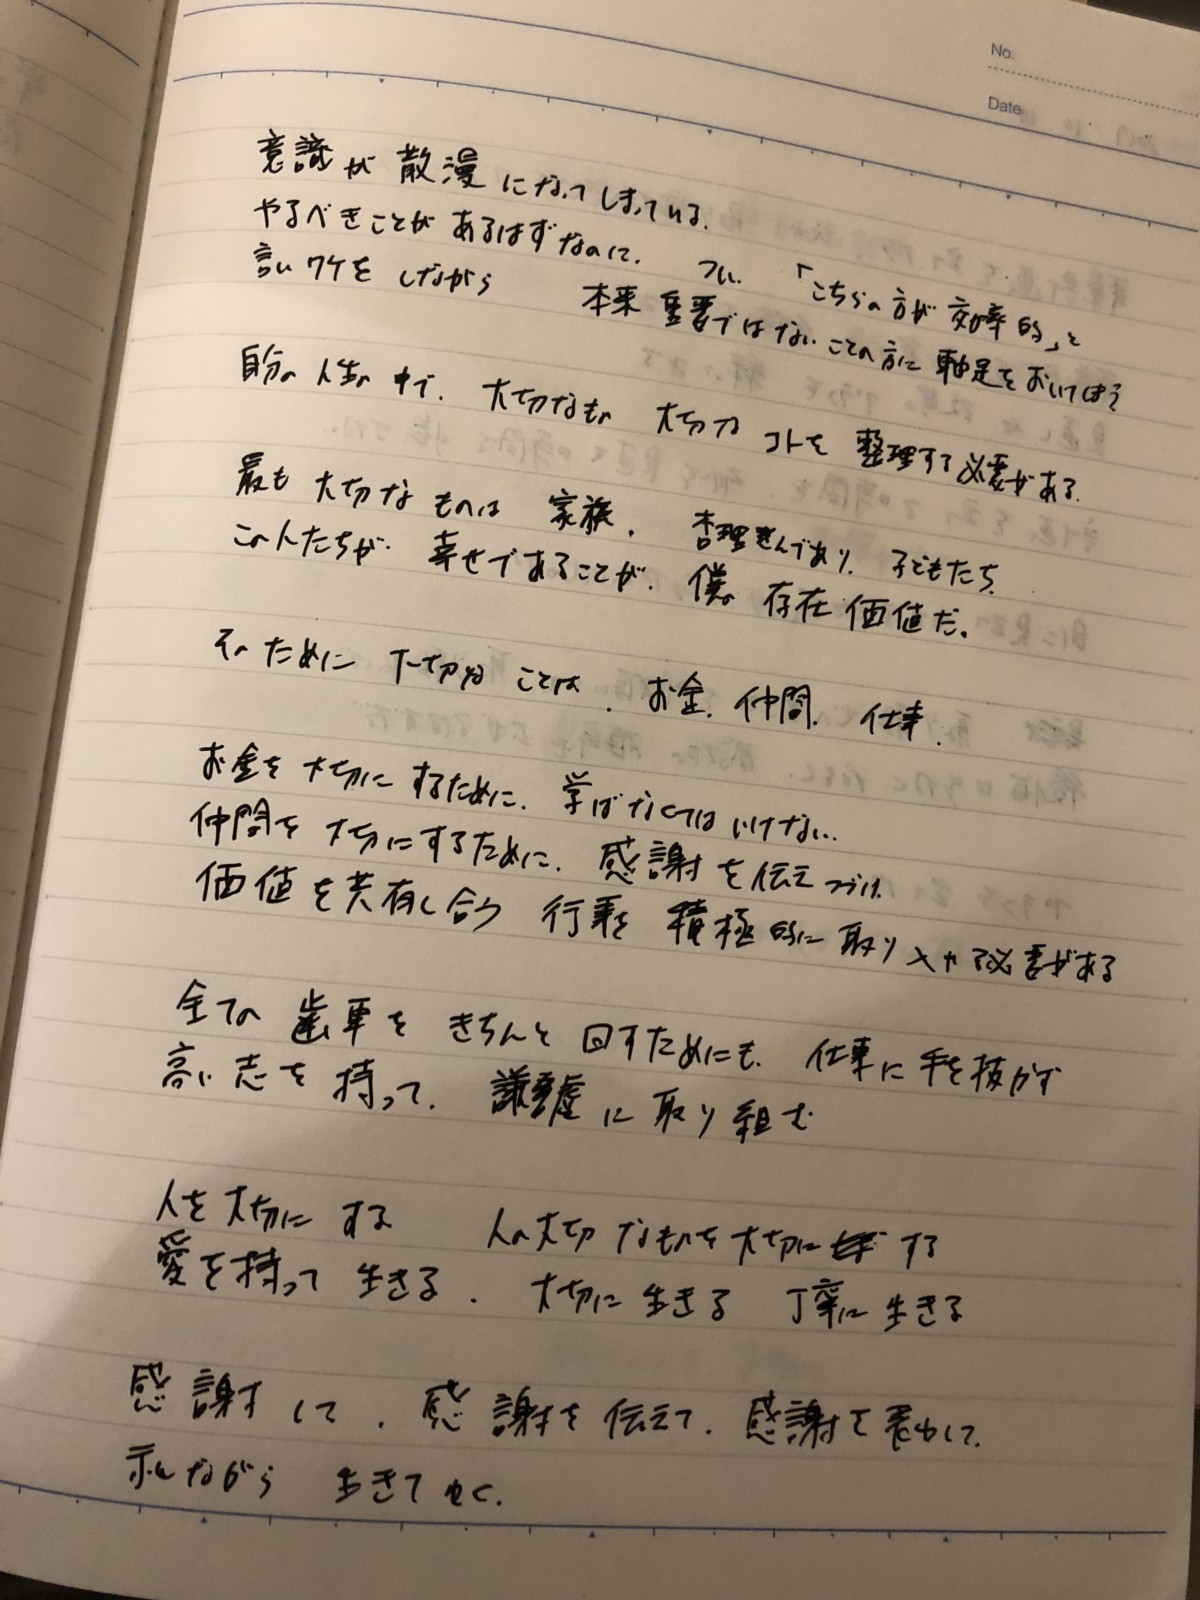 No.
Date
意識が散漫になってしまっている.
やるべきことがあるはずなのに. つい. 「こちらの方が効率的」と
言いワケをしながら 本来重要ではないことの方に軸足をおいてしまう
自分の人生の中で. 大切なもの 大切なコトを整理する必要がある.
最も大切なものは 家族. 杏理さんであり. 子どもたち.
この人たちが. 幸せであることが. 僕の存在価値だ.
そのために大切なことは. お金. 仲間. 仕事.
お金を大切にするために. 学ばなくてはいけない.
仲間を大切にするために. 感謝を伝えつづけ.
価値を共有し合う 行事を積極的に取り入れる必要がある
全ての歯車をきちんと回すためにも. 仕事に手を抜かず
高い志を持って. 謙虚に取り組む
人を大切にする 人の大切なものを大切にする
愛を持って生きる. 大切に生きる 丁寧に生きる
感謝して. 感謝を伝えて. 感謝を表わして.
示しながら 生きてゆく.